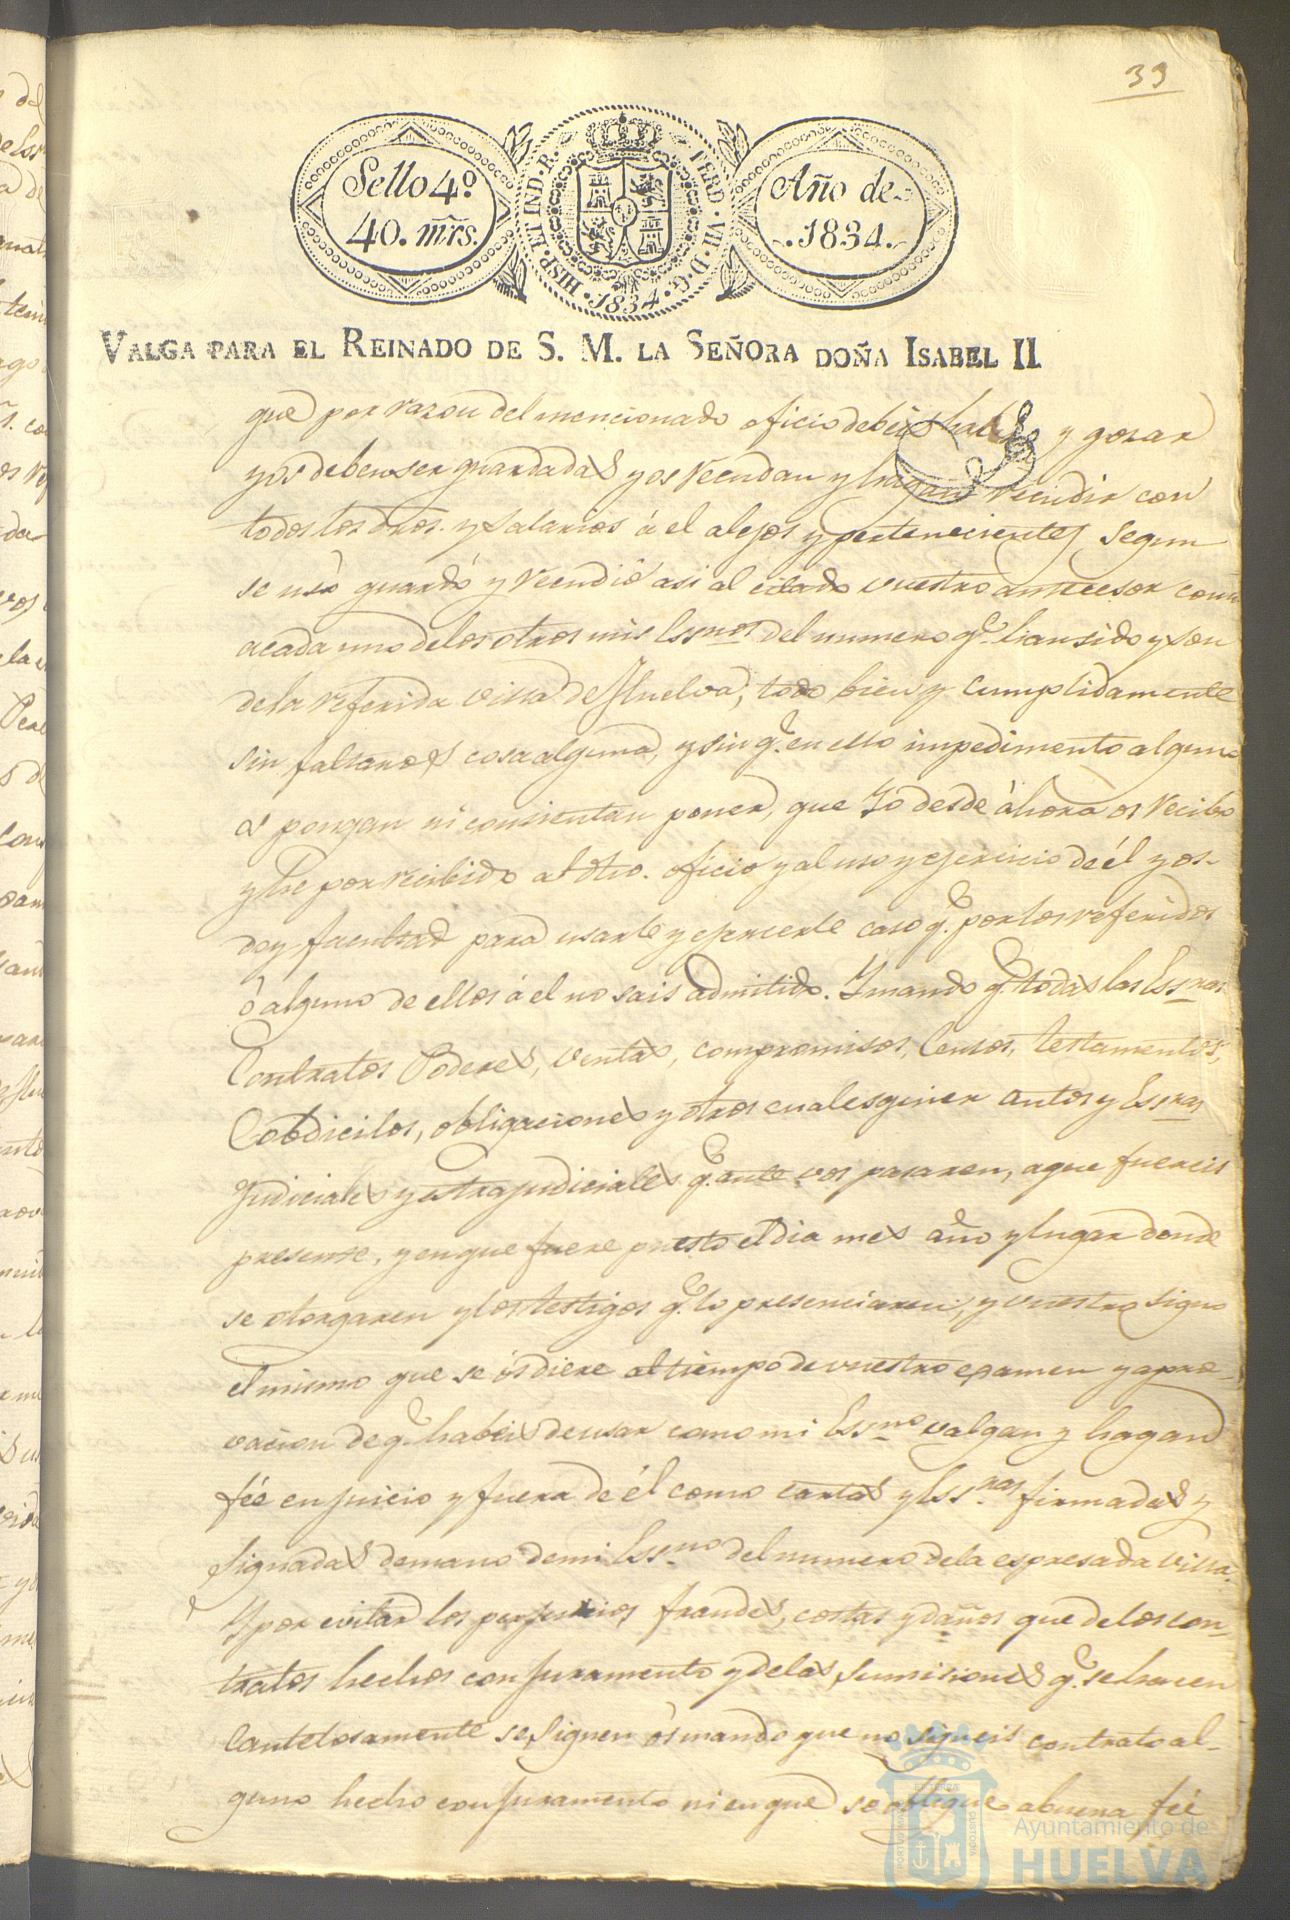 39
Sello 4º
40. mrs.
HISP. ET IND. R. FERD. VII. D. G. 1834.
Año de
1834.
VALGA PARA EL REINADO DE S. M. LA SEÑORA DOÑA ISABEL II.
que por razon del mencionado oficio debeis haber y gozar
y os deben ser guardadas y os recudan y hagan recudir con
todos los dros. y salarios á el alejos y pertenecientes segun
se usó guardó y recudió asi al citado vuestro antecesor como
a cada uno de los otros mis Essnos del numero q.e han sido y son
de la referida villa de Huelva, todo bien y cumplidamente
sin faltaros cosa alguna, y sin q.e en ello impedimento alguno
os pongan ni consientan poner, que Yo desde áhora os recibo
y he por recibido al dho. oficio y al uso y ejercicio de él y os
doy facultad para usarle y ejercerle caso q.e por los referidos
ó alguno de ellos á el no seais admitido. Y mando q.e todas las Essras
Contratos Poderes, ventas, compromisos, Censos, testamentos,
Cobdicilos, obligaciones y otros cualesquier autos y Essras
Judiciales y estrajudiciales q.e ante vos pasaren, a que fuereis
presente, y en que fuere puesto el dia mes año y lugar donde
se otorgaren y los testigos q.e lo presenciaren, y vuestro signo
el mismo que se ós diere al tiempo de vuestro examen y apro-
vacion de q.e habeis de usar como mi Essno valgan y hagan
fée en juicio y fuera de él como cartas y Essras firmadas y
signadas de mano de mi Essno del numero de la espresada villa.
Y por evitar los perjurios, fraudes, costas y daños que de los con-
tratos hechos con juramento y de las sumisiones q.e se hacen
Cautelosamente se siguen ós mando que no signeis contrato al-
guno hecho con juramento ni en que se obligue a buena fée
Ayuntamiento de
HUELVA